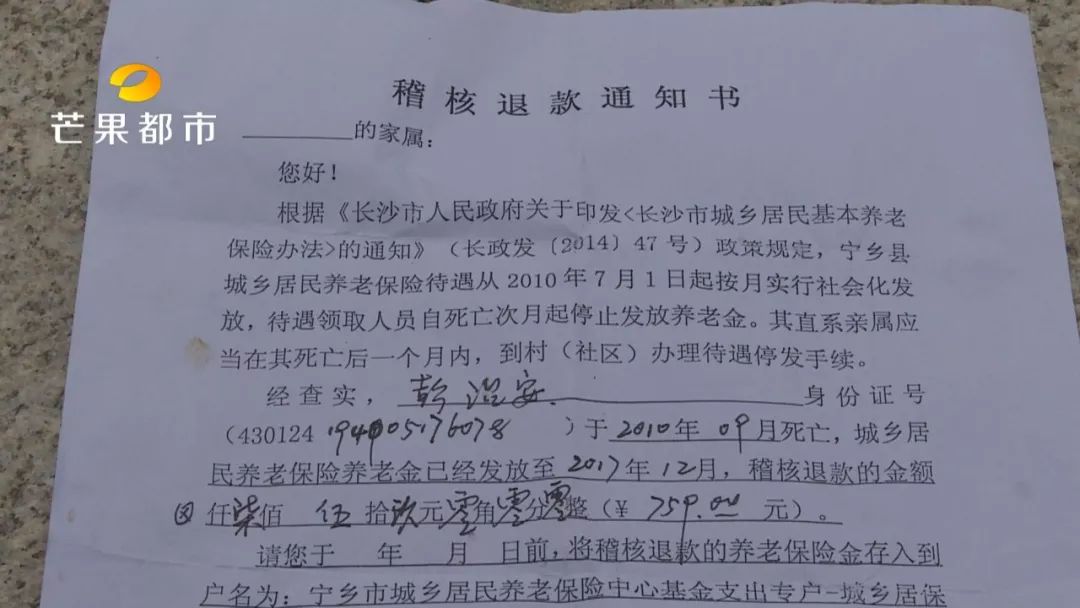 芒果都市
稽核退款通知书
的家属:
您好!
根据《长沙市人民政府关于印发<长沙市城乡居民基本养老
保险办法>的通知》（长政发〔2014〕47号）政策规定，宁乡县
城乡居民养老保险待遇从2010年7月1日起按月实行社会化发
放，待遇领取人员自死亡次月起停止发放养老金。其直系亲属应
当在其死亡后一个月内，到村（社区）办理待遇停发手续。
经查实，彭 安 身份证号
（430124 194005176078 ）于2010年09月死亡，城乡居
民养老保险养老金已经发放至2017年12月，稽核退款的金额
仟柒佰伍拾玖元零角零分整（¥ 759.00 元）。
请您于 年 月 日前，将稽核退款的养老保险金存入到
户名为：宁乡市城乡居民养老保险中心基金支出专户-城乡居保